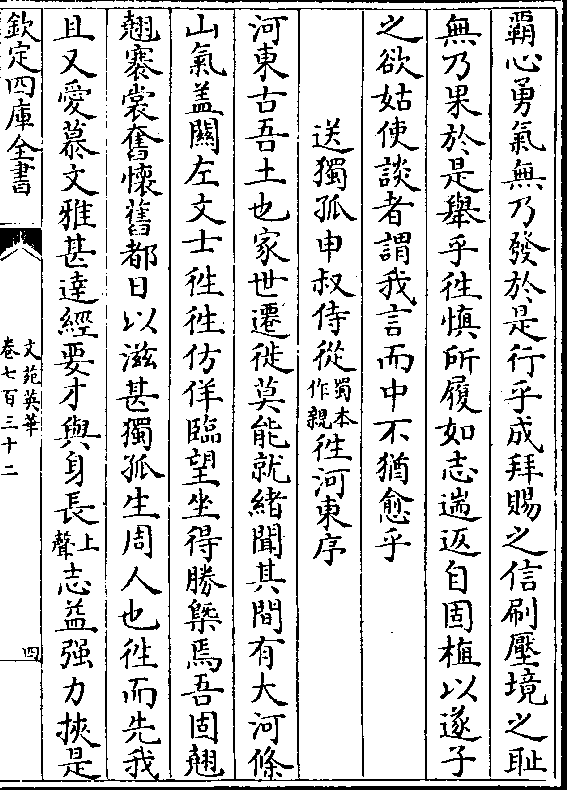 霸心勇氣無乃發於是行乎成拜賜之信刷壓境之恥
無乃果於是舉乎徃慎所履如志遄返自固植以遂子
之欲姑使談者謂我言而中不猶愈乎
送獨孤申叔侍從蜀本作親徃河東序
河東古吾土也家世遷徙莫能就緒聞其間有大河條
山氣蓋關左文士徃徃仿佯臨望坐得勝槩焉吾固翹
翹褰裳奮懷舊都日以滋甚獨孤生周人也徃而先我
且又愛慕文雅甚達經要才與身長上聲志益强力挾是
欽定四庫全書
文苑英華
卷七百三十二
四